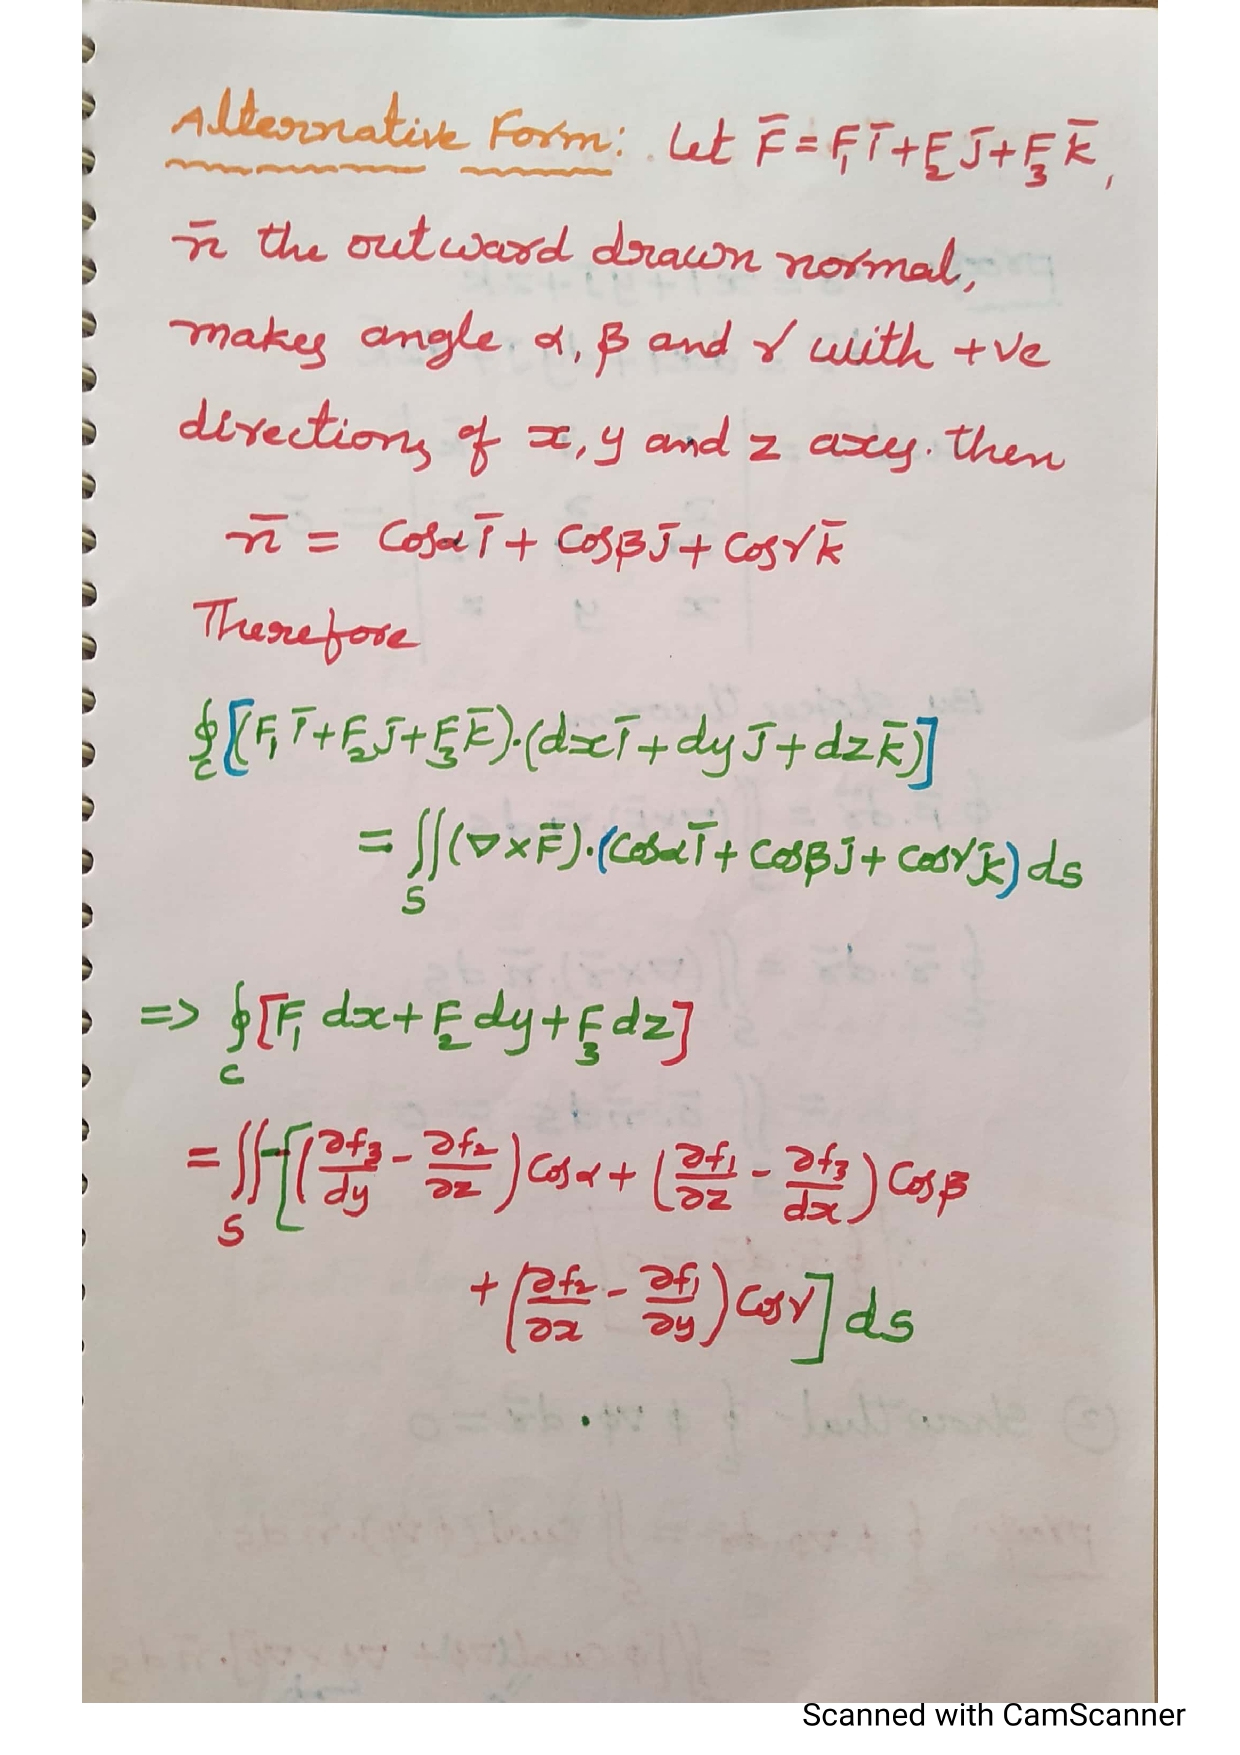 Alternative Form: Let F̄ = F₁ī + F₂j̄ + F₃k̄,
n̄ the outward drawn normal,
makes angle α, β and γ with +ve
directions of x, y and z axes. then
n̄ = Cosα ī + Cosβ j̄ + Cosγ k̄
Therefore
∮_C [(F₁ī + F₂j̄ + F₃k̄)·(dx ī + dy j̄ + dz k̄)]
= ∬_S (∇×F̄)·(Cosα ī + Cosβ j̄ + Cosγ k̄) ds
=> ∮_C [F₁ dx + F₂ dy + F₃ dz]
= ∬_S [(∂f₃/dy - ∂f₂/∂z) Cosα + (∂f₁/∂z - ∂f₃/dx) Cosβ
+ (∂f₂/∂x - ∂f₁/∂y) Cosγ] ds
Scanned with CamScanner